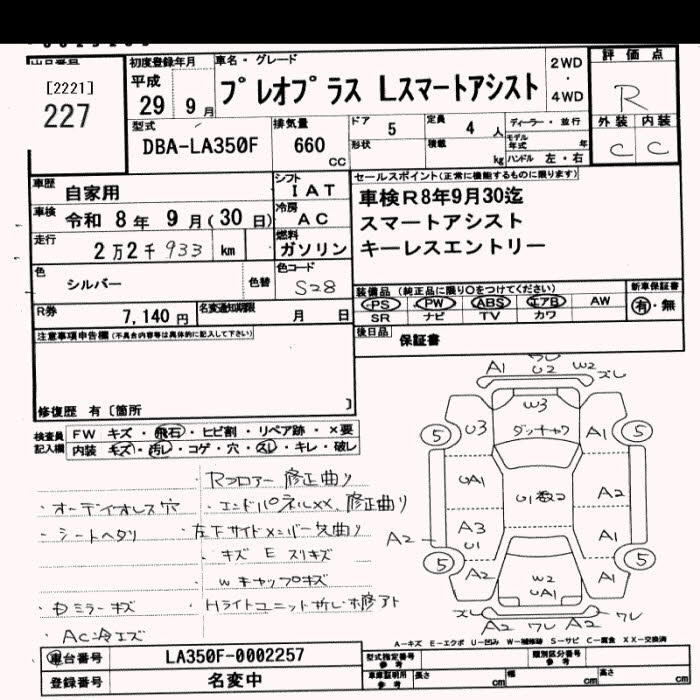 [2221]
227
初度登録年月
平成
29 9月
車名・グレード
プレオプラス Lスマートアシスト
2WD
・
4WD
評価点
R
外装 内装
C C
型式
DBA-LA350F
排気量
660
cc
ドア
5
定員
4 人
形状
積載
kg
ディーラー・並行
モデル年式 年
ハンドル 左・右
車歴
自家用
シフト
IAT
車検
令和 8年 9月(30日)
冷房
AC
走行
2万2千933 km
燃料
ガソリン
色
シルバー
色替
色コード
S28
R券
7,140円
名変通知期限
月 日
セールスポイント(正常に機能するものに限ります)
車検R8年9月30迄
スマートアシスト
キーレスエントリー
装備品(純正品に限り○をつけてください)
PS PW ABS エアB AW
SR ナビ TV カワ
新車保証書
有・無
後日品
保証書
注意事項申告欄(不具合内容等は具体的に記入して下さい)
修復歴 有〔箇所 〕
検査員
記入欄
FW キズ・飛石・ヒビ割・リペア跡・×要
内装 キズ・汚レ・コゲ・穴・スレ・キレ・破レ
Rフロアー修正曲り
・オーディオレス穴
・エンドパネルXX、修正曲り
・シートヘタリ
・左下サイドメンバー突曲り
・キズ E スリキズ
・Wキャップキズ
・Hライトユニット折レ未修アト
・ACエズ
A1 U2 W2 ズレ
W3
5 U3 ダッシャク A1 5
UA1 U1数コ A2
A3
U1
A2
A1
5 5
A2 W2
UA1 A1
ズレ
A2 ワレ A2 ワレ
A-キズ E-エクボ U-凹み W-補修跡 S-サビ C-腐食 XX-交換済
車台番号
LA350F-0002257
登録番号
名変中
型式指定番号
参考
類別区分番号
参考
車庫証明用
参考
長さ cm
幅 cm
高さ cm